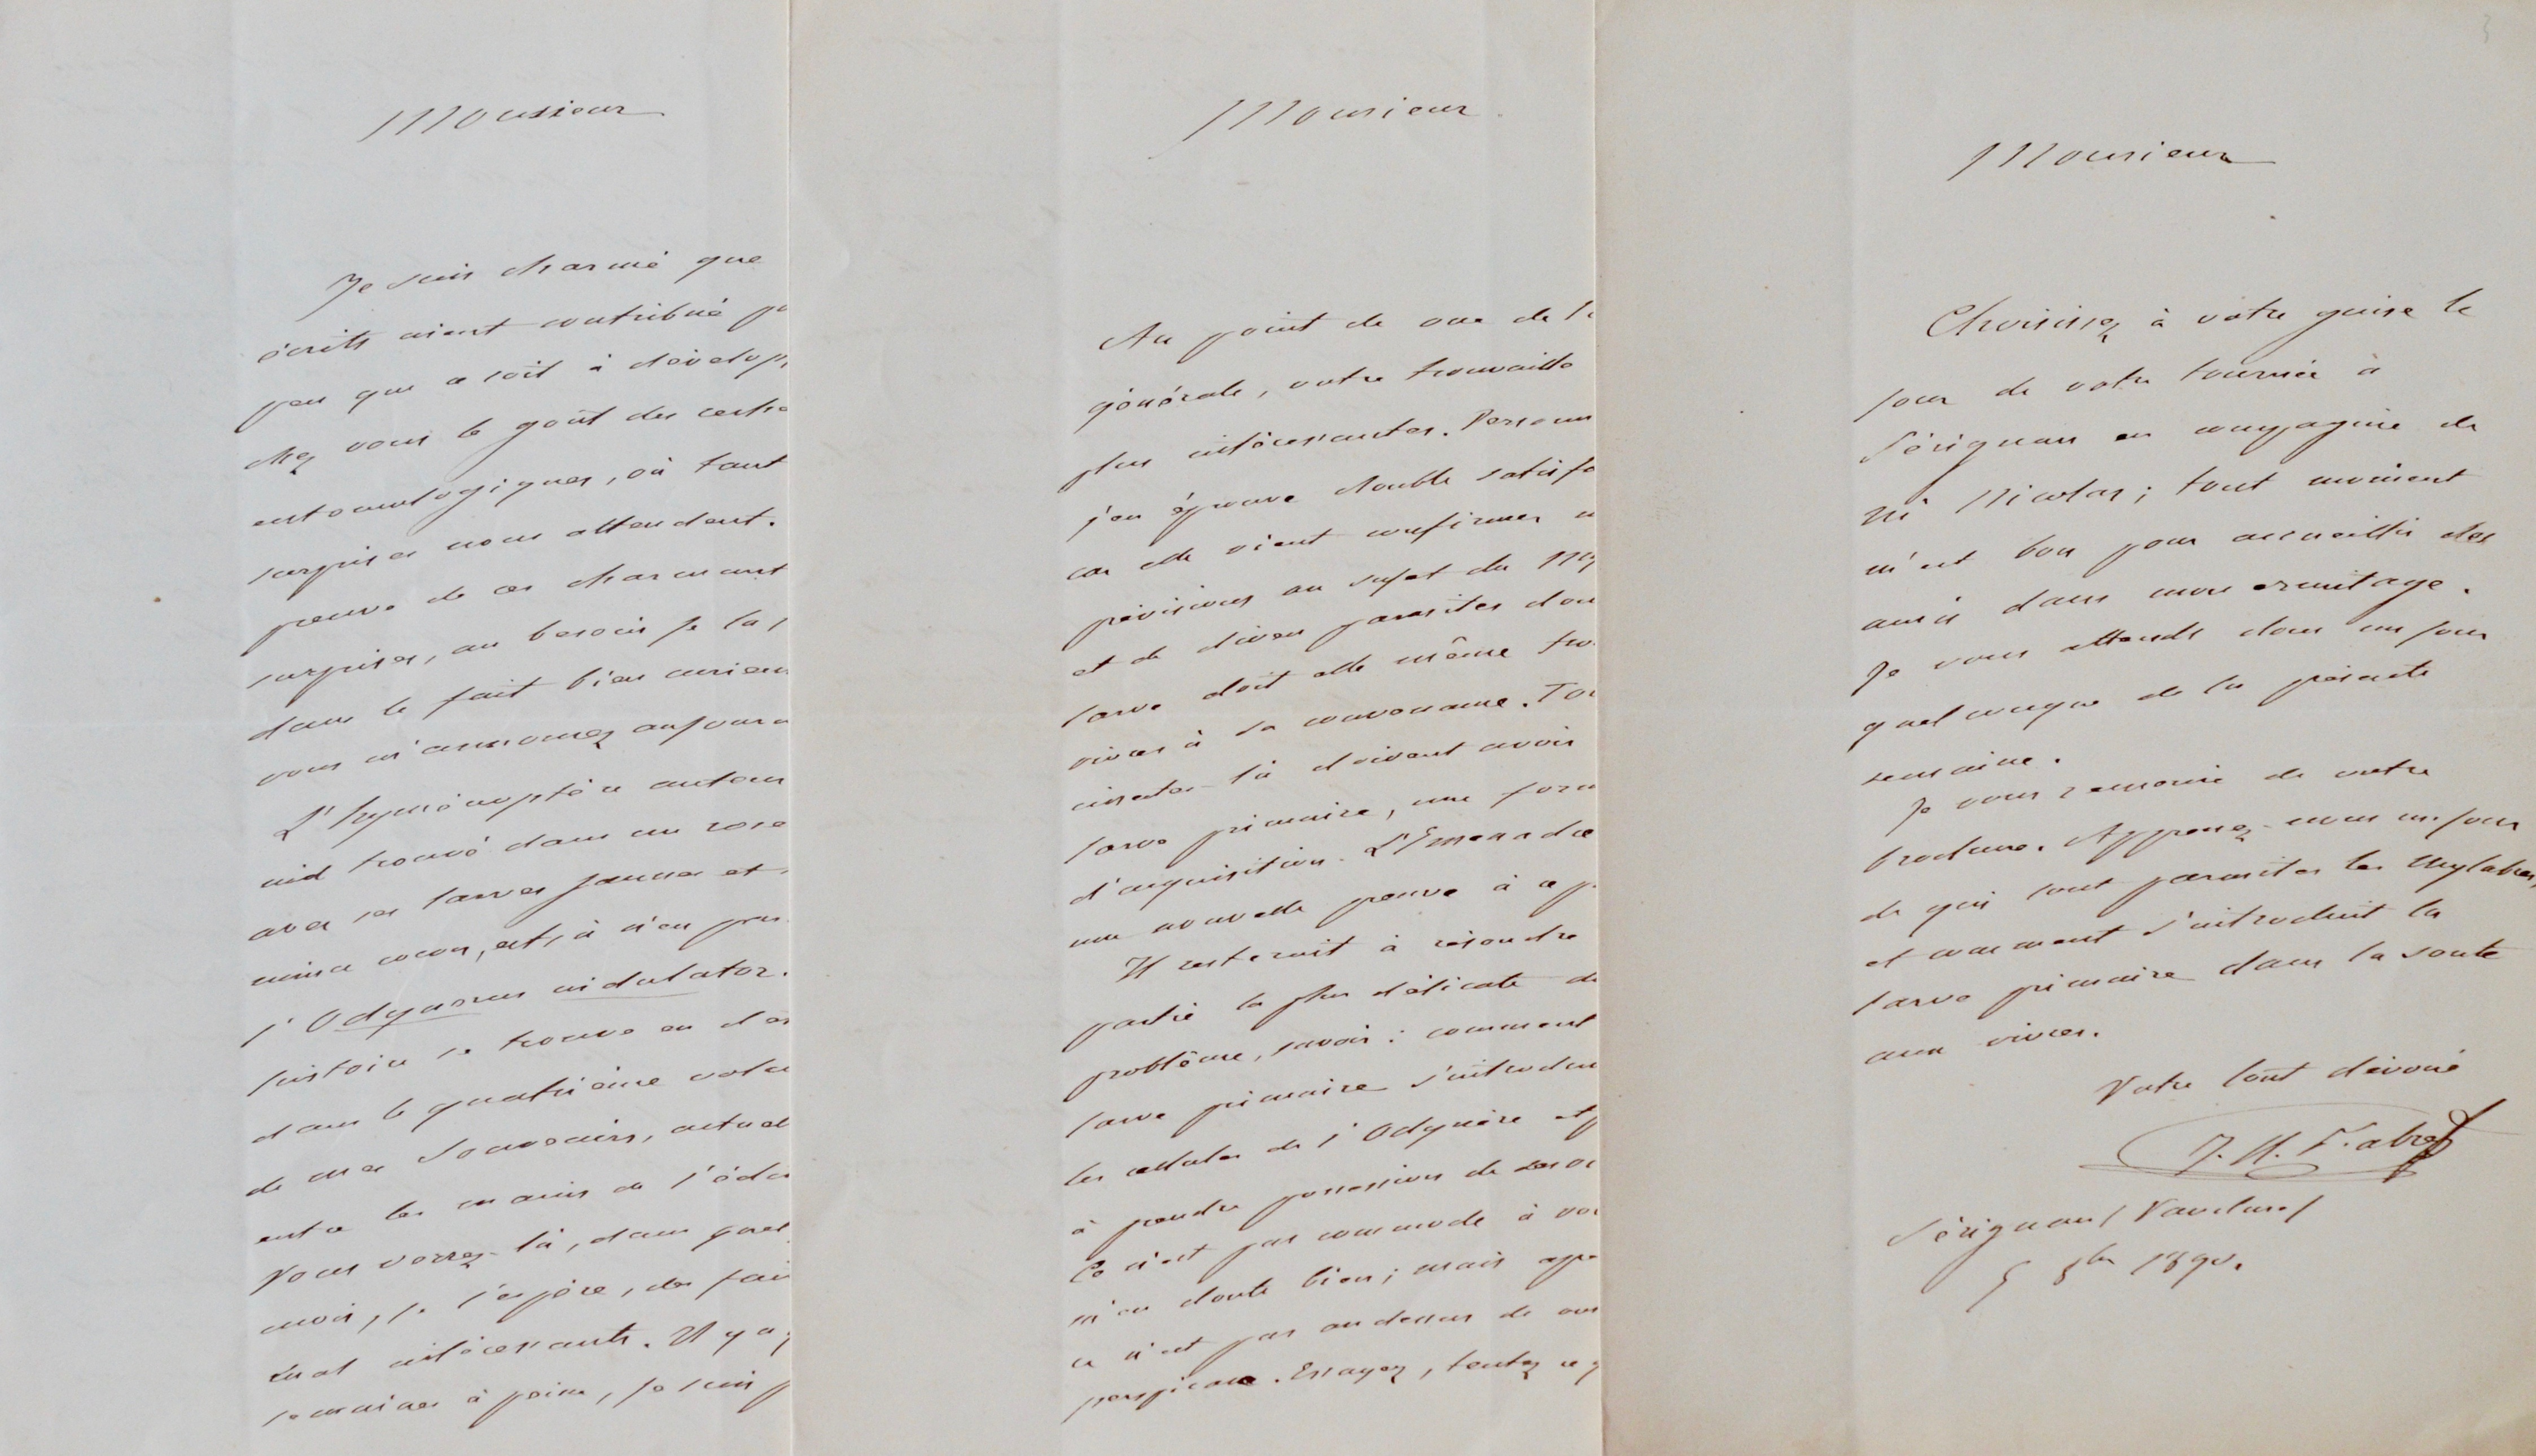 Monsieur
Je suis charmé que
écrits aient contribué
peu que ce soit à dévelop
chez vous le goût des
entomologiques, où tant
surprises nous attendent.
preuve de ces charmant
surprises, au besoin je la
dans le fait bien curieux
vous m'annoncez aujourd
L'hyménoptère auteur
nid trouvé dans un rose
avec ses larves jaunes et
mince cocon, est, à n'en pas
l'Odynerus nidulator.
histoire se trouve en
dans le quatrième volu
de mes Souvenirs, actuel
entre les mains de l'édi
Vous verrez-là, dans quel
mois, je l'espère, des fai
intéressants. Il y a
semaines à peine, je suis
Monsieur
Au point de vue de l
générale, votre trouvaille
plus intéressantes. Personn
j'en éprouve double satisfa
car elle vient confirmer
prévisions au sujet du My
et de divers parasites don
larve doit elle même tro
vivres à sa convenance. To
insectes-là doivent avoir
larve primaire, une form
d'acquisition. L'Emenadie
une nouvelle preuve à ce p
Il resterait à résoudre
partie la plus délicate du
problème, savoir : comment
larve primaire s'introdui
les cellules de l'Odynère et
à prendre possession de
Ce n'est pas commode à voi
m'en doute bien; mais
ce n'est pas au dessus de
perspicace. Essayez, tentez
3
Monsieur
Choisissez à votre guise le
jour de votre tournée à
Sérignan en compagnie de
Mr Nicolas; tout moment
m'est bon pour accueillir des
amis dans mon ermitage.
Je vous attends donc un jour
quelconque de la présente
semaine.
Je vous remercie de votre
brochure. Apprenez-nous un jour
de qui sont parasites les Mylabres,
et comment s'introduit la
larve primaire dans la soute
aux vivres.
Votre tout dévoué
J. H. Fabre
Sérignan (Vaucluse)
5 8bre 1890.